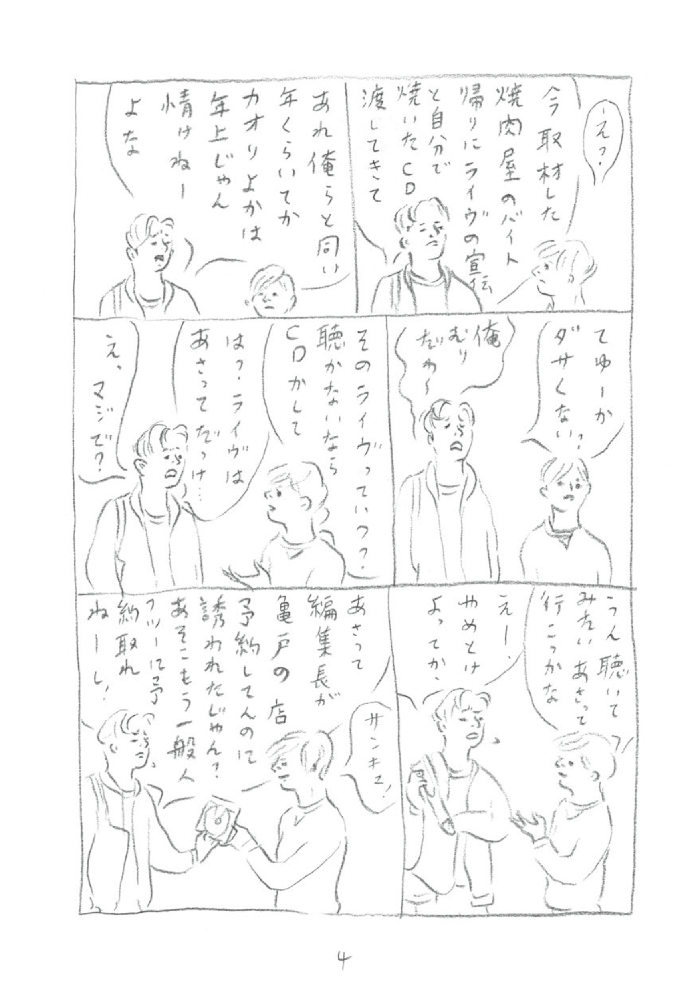 え?
今取材した
焼肉屋のバイト
帰りにライヴの宣伝
と自分で
焼いたCD
渡してきて
あれ俺らと同い
年くらいてか
カオリよかは
年上じゃん
情けねー
よな
てゆーか
ダサくない?
俺
むり
だわ〜
そのライヴっていつ?
聴かないなら
CDかして
はっ・ライヴは
あさってだっけ…
え、マジで?
うん聴いて
みたいあさって
行こっかな
えー、
やめとけ
よってか、
サンキュ!
あさって
編集長が
亀戸の店
予約してんのに
誘われたじゃん?
あそこもう一般人
フツーに予
約取れ
ねーし!
4